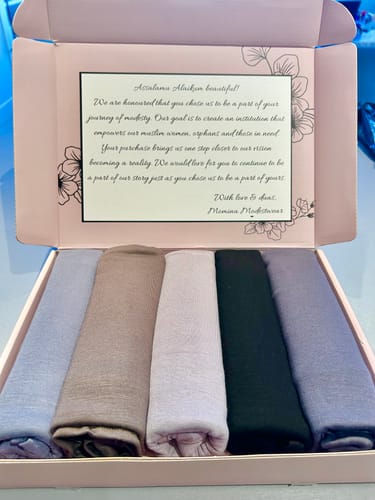 Assalamu Alaikum beautiful!
We are honoured that you chose us to be a part of your
journey of modesty. Our goal is to create an institution that
empowers our muslim women, orphans and those in need.
Your purchase brings us one step closer to our vision
becoming a reality. We would love for you to continue to be
a part of our story just as you chose us to be a part of yours.
With love & duas,
Momina Modestwear